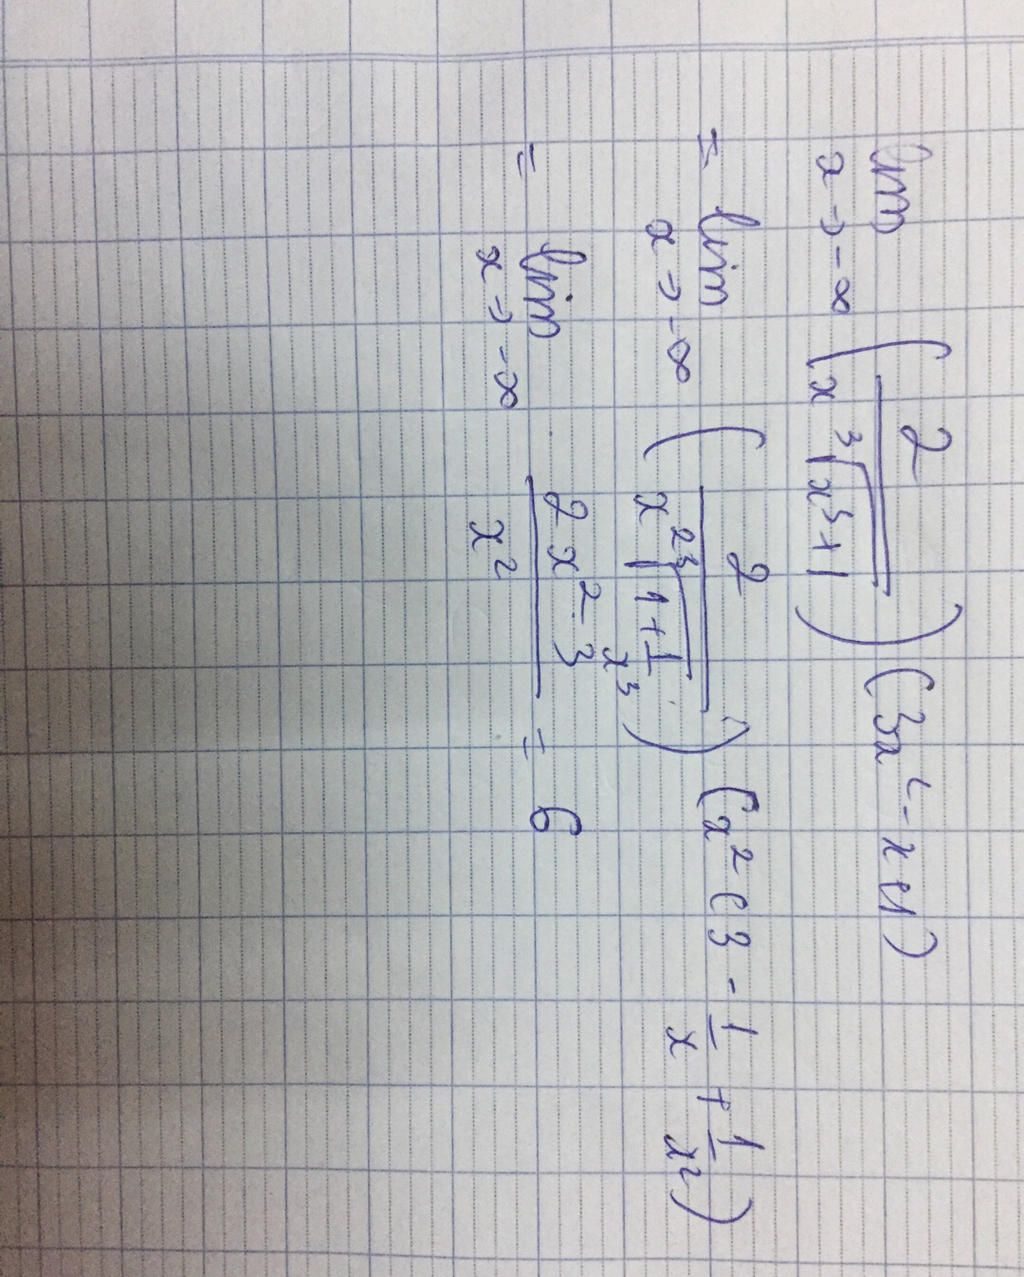 lim x→-∞ (2 / (x ∛(x³+1))) (3x² - x + 1)
= lim x→-∞ (2 / (x² ∛(1 + 1/x³))) (x² (3 - 1/x + 1/x²)
= lim x→-∞ (2x² · 3) / x² = 6